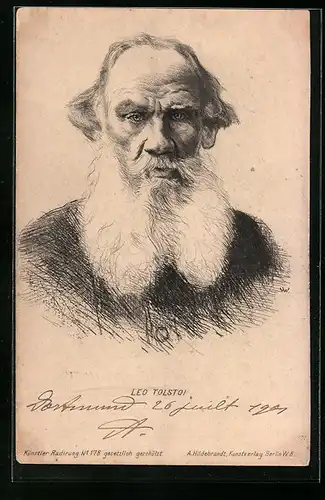 LEO TOLSTOI
Dortmund 26 juilt 1901
Künstler Radirung No 178 gesetzlich geschützt. A. Hildebrandt, Kunstverlag Berlin W.8.